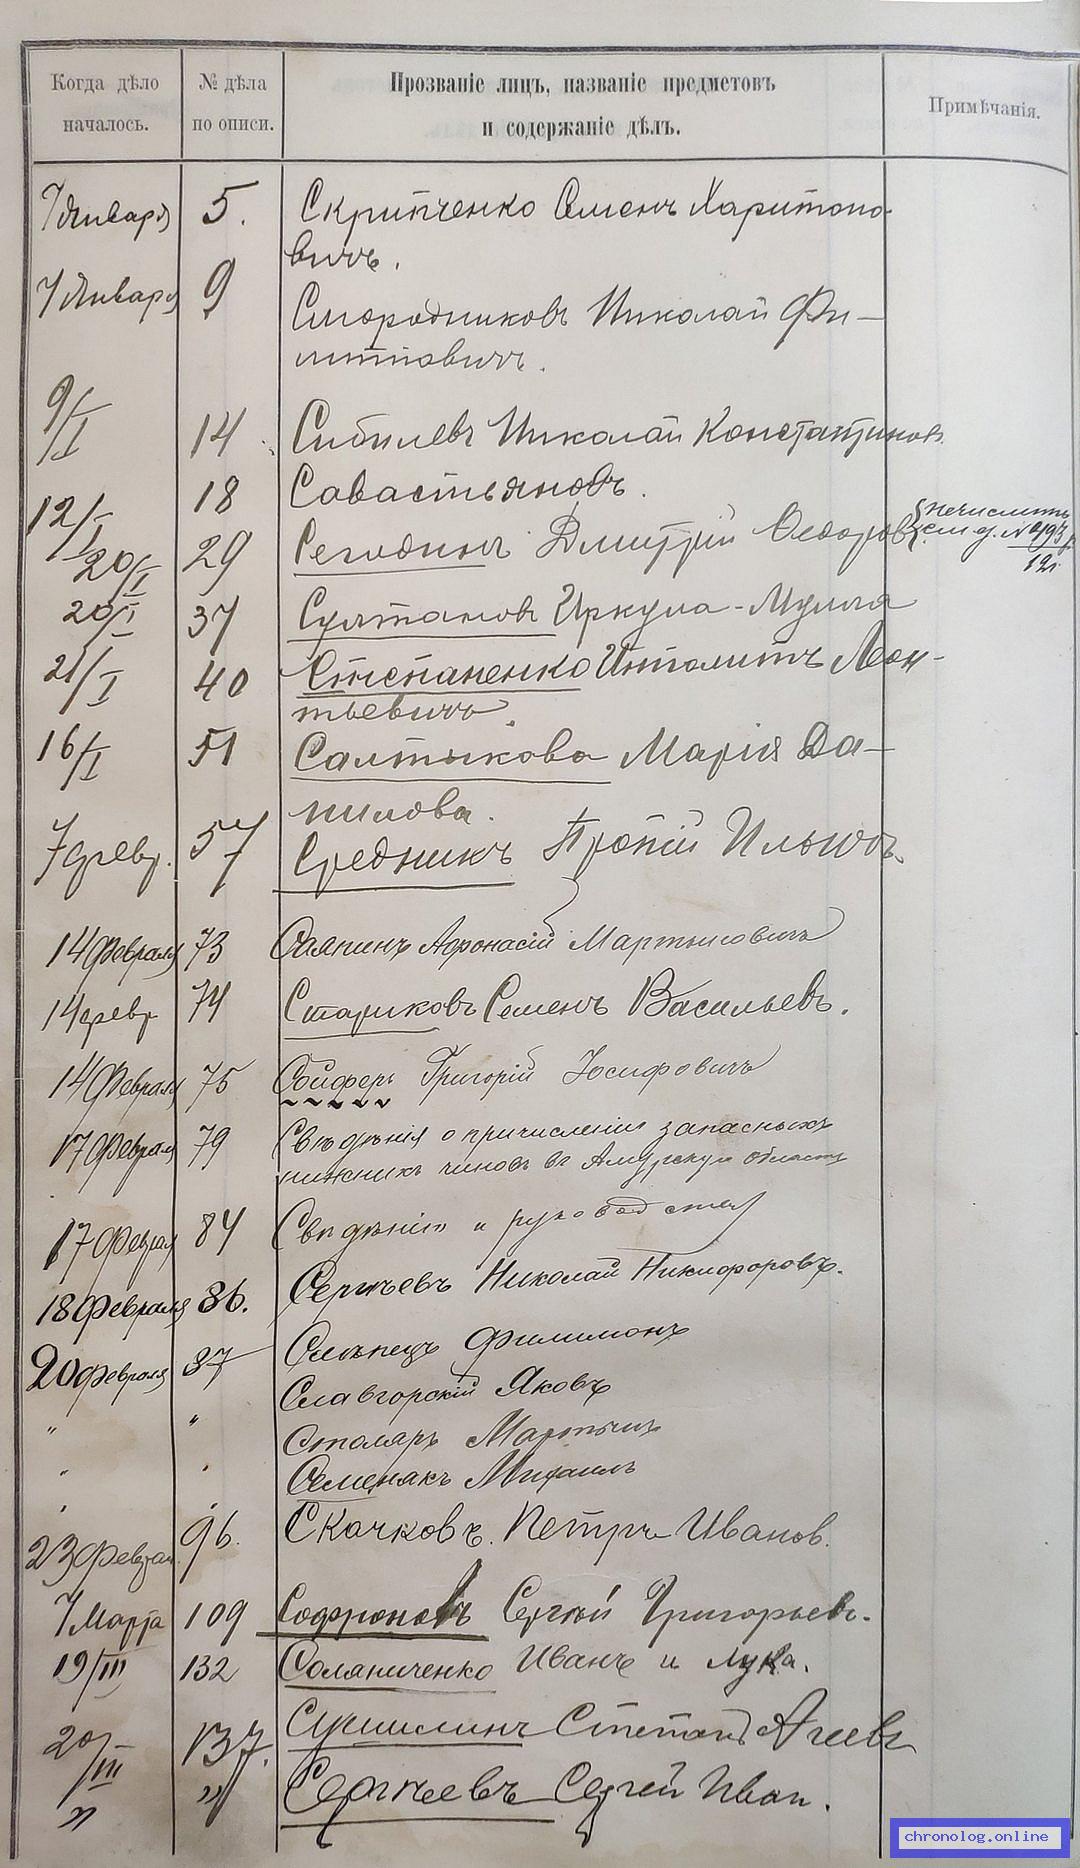 Когда дѣло началось.
№ дѣла по описи.
Прозваніе лицъ, названіе предметовъ
и содержаніе дѣлъ.
Примѣчанія.
7 Января 5. Скрипченко Семенъ Харитоно-
вичъ.
7 Января 9 Смородниковъ Николай Фи-
липповичъ.
9/I 14 Сибилевъ Николай Константинов.
12/I 18 Савастьяновъ.
20/I 29 Сегодинъ Дмитрій Ѳедоров
20/I 37 Султановъ Иркула-Мулла
21/I 40 Степаненко Ипполитъ Леон-
тьевичъ.
16/I 51 Салтыкова Марія Да-
нилова.
7 февр. 57 Средникъ Ильичъ
14 Февраля 73 Саяпинъ Афонасій Мартыновичъ
14 февр 74 Стариковъ Семенъ Васильевъ.
14 Февраля 75 Сойферъ Григорій Іосифовичъ
17 Феврал 79 Свѣдѣнія о причисленіи запасныхъ
нижнихъ чиновъ въ Амурскую область
17 Феврал 84 Свѣдѣнія и
18 Февраля 86. Сергѣевъ Николай Никифоровъ.
20 Февраля 87 Слѣпецъ Филимонъ
" " Славгорскій Яковъ
Столяръ Мартынъ
Семенякъ Михаилъ
23 Феврал 96. Скачковъ Петръ Иванов.
7 Марта 109 Софроновъ Сергѣй Григорьевъ.
19/III 132 Соляниченко Иванъ и Лука.
20/III 137. Степанъ Агеевъ
" " Сергѣевъ Сергѣй Иван.
chronolog.online